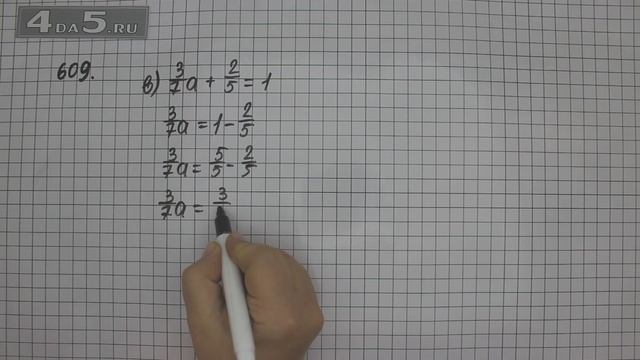 4DA5.RU
609.
в) 3/7 a + 2/5 = 1
3/7 a = 1 - 2/5
3/7 a = 5/5 - 2/5
3/7 a = 3/